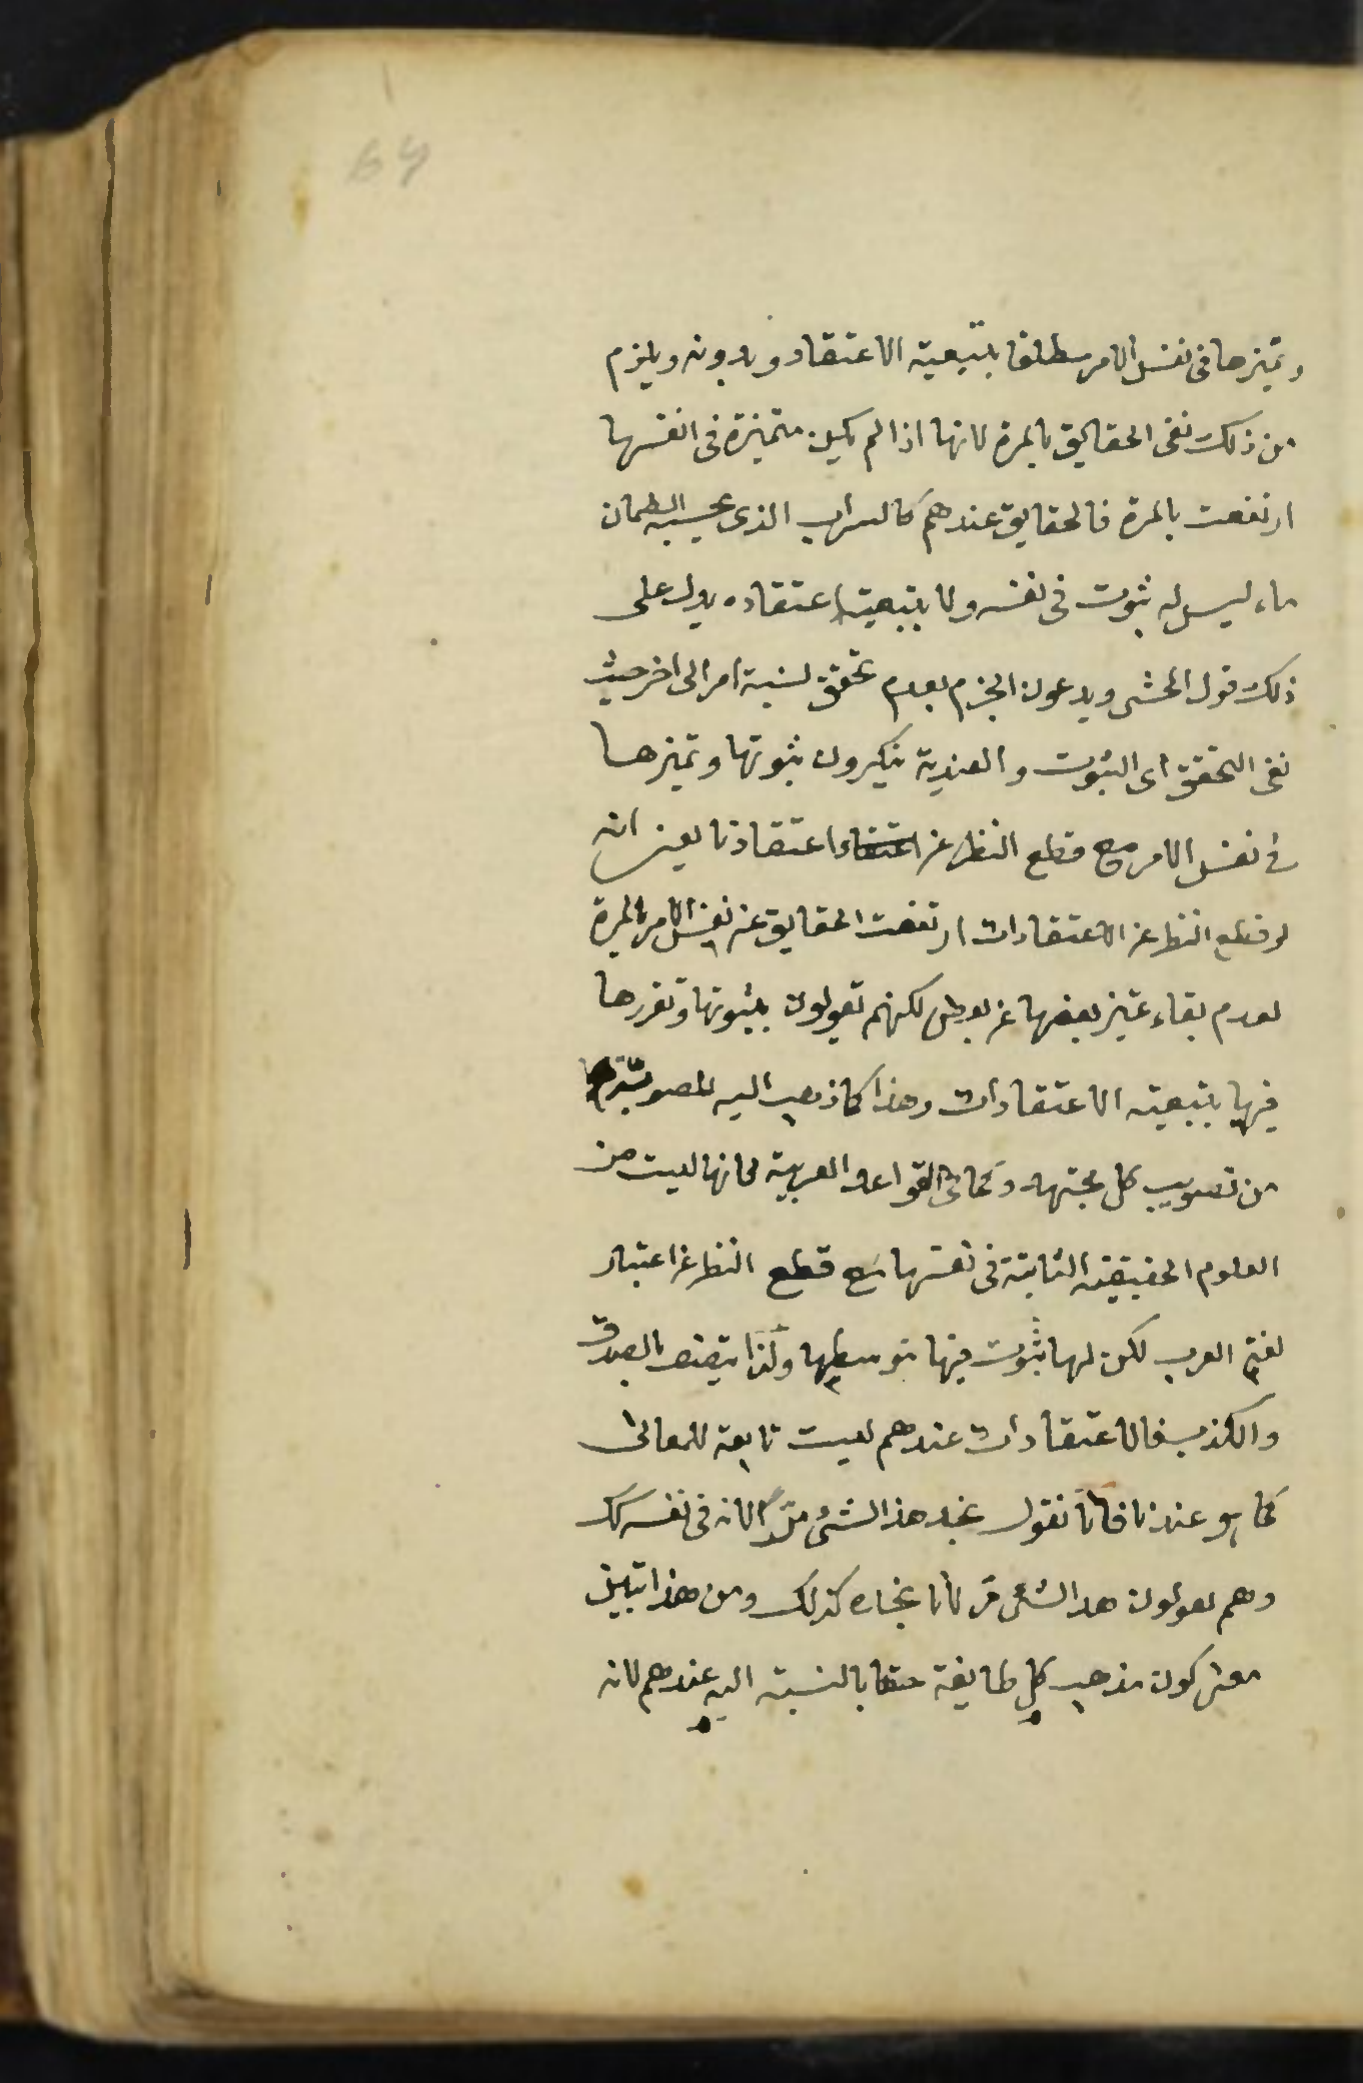 64
وتميزها فى نفس الامر مطلقا بتبعية الاعتقاد وبدونه ويلزم
من ذلك نفى الحقايق بالمرة لانها اذا لم يكن متميزة فى انفسها
ارتفعت بالمرة فالحقايق عندهم كالسراب الذى يحسبه الظمان
ماء ليس له ثبوت فى نفسه ولا بتبعية اعتقاده يدل على
ذلك قول المحشى ويدعون الجزم بعدم تحقق نسبة امر الى اخر حيث
نفى التحقق اى الثبوت والعندية ينكرون ثبوتها وتميزها
فى نفس الامر مع قطع النظر عن اعتقادنا يعنى انه
لو قطع النظر عن الاعتقادات ارتفعت الحقايق عن نفس الامر بالمرة
لعدم بقاء تميز بعضها عن بعض لكنهم يقولون بثبوتها وتقررها
فيها بتبعية الاعتقادات وهذا كما ذهب اليه المصوبة
من تصويب كل مجتهد وكما فى القواعد العربية فانها ليست من
العلوم الحقيقية الثابتة فى نفسها مع قطع النظر عن اعتبار
لغة العرب لكن لها ثبوت فيها بتوسطها ولذا يتصف بالصدق
والكذب فالاعتقادات عندهم ليست تابعة للمعانى
كما هو عندنا فانا نقول نجد هذا الشئ مرّا لانه فى نفسه كك
وهم يقولون هذا الشئ مر لانا نجده كذلك ومن هذا تبين
معنى كون مذهب كل طايفة حقا بالنسبة اليه عندهم لانه